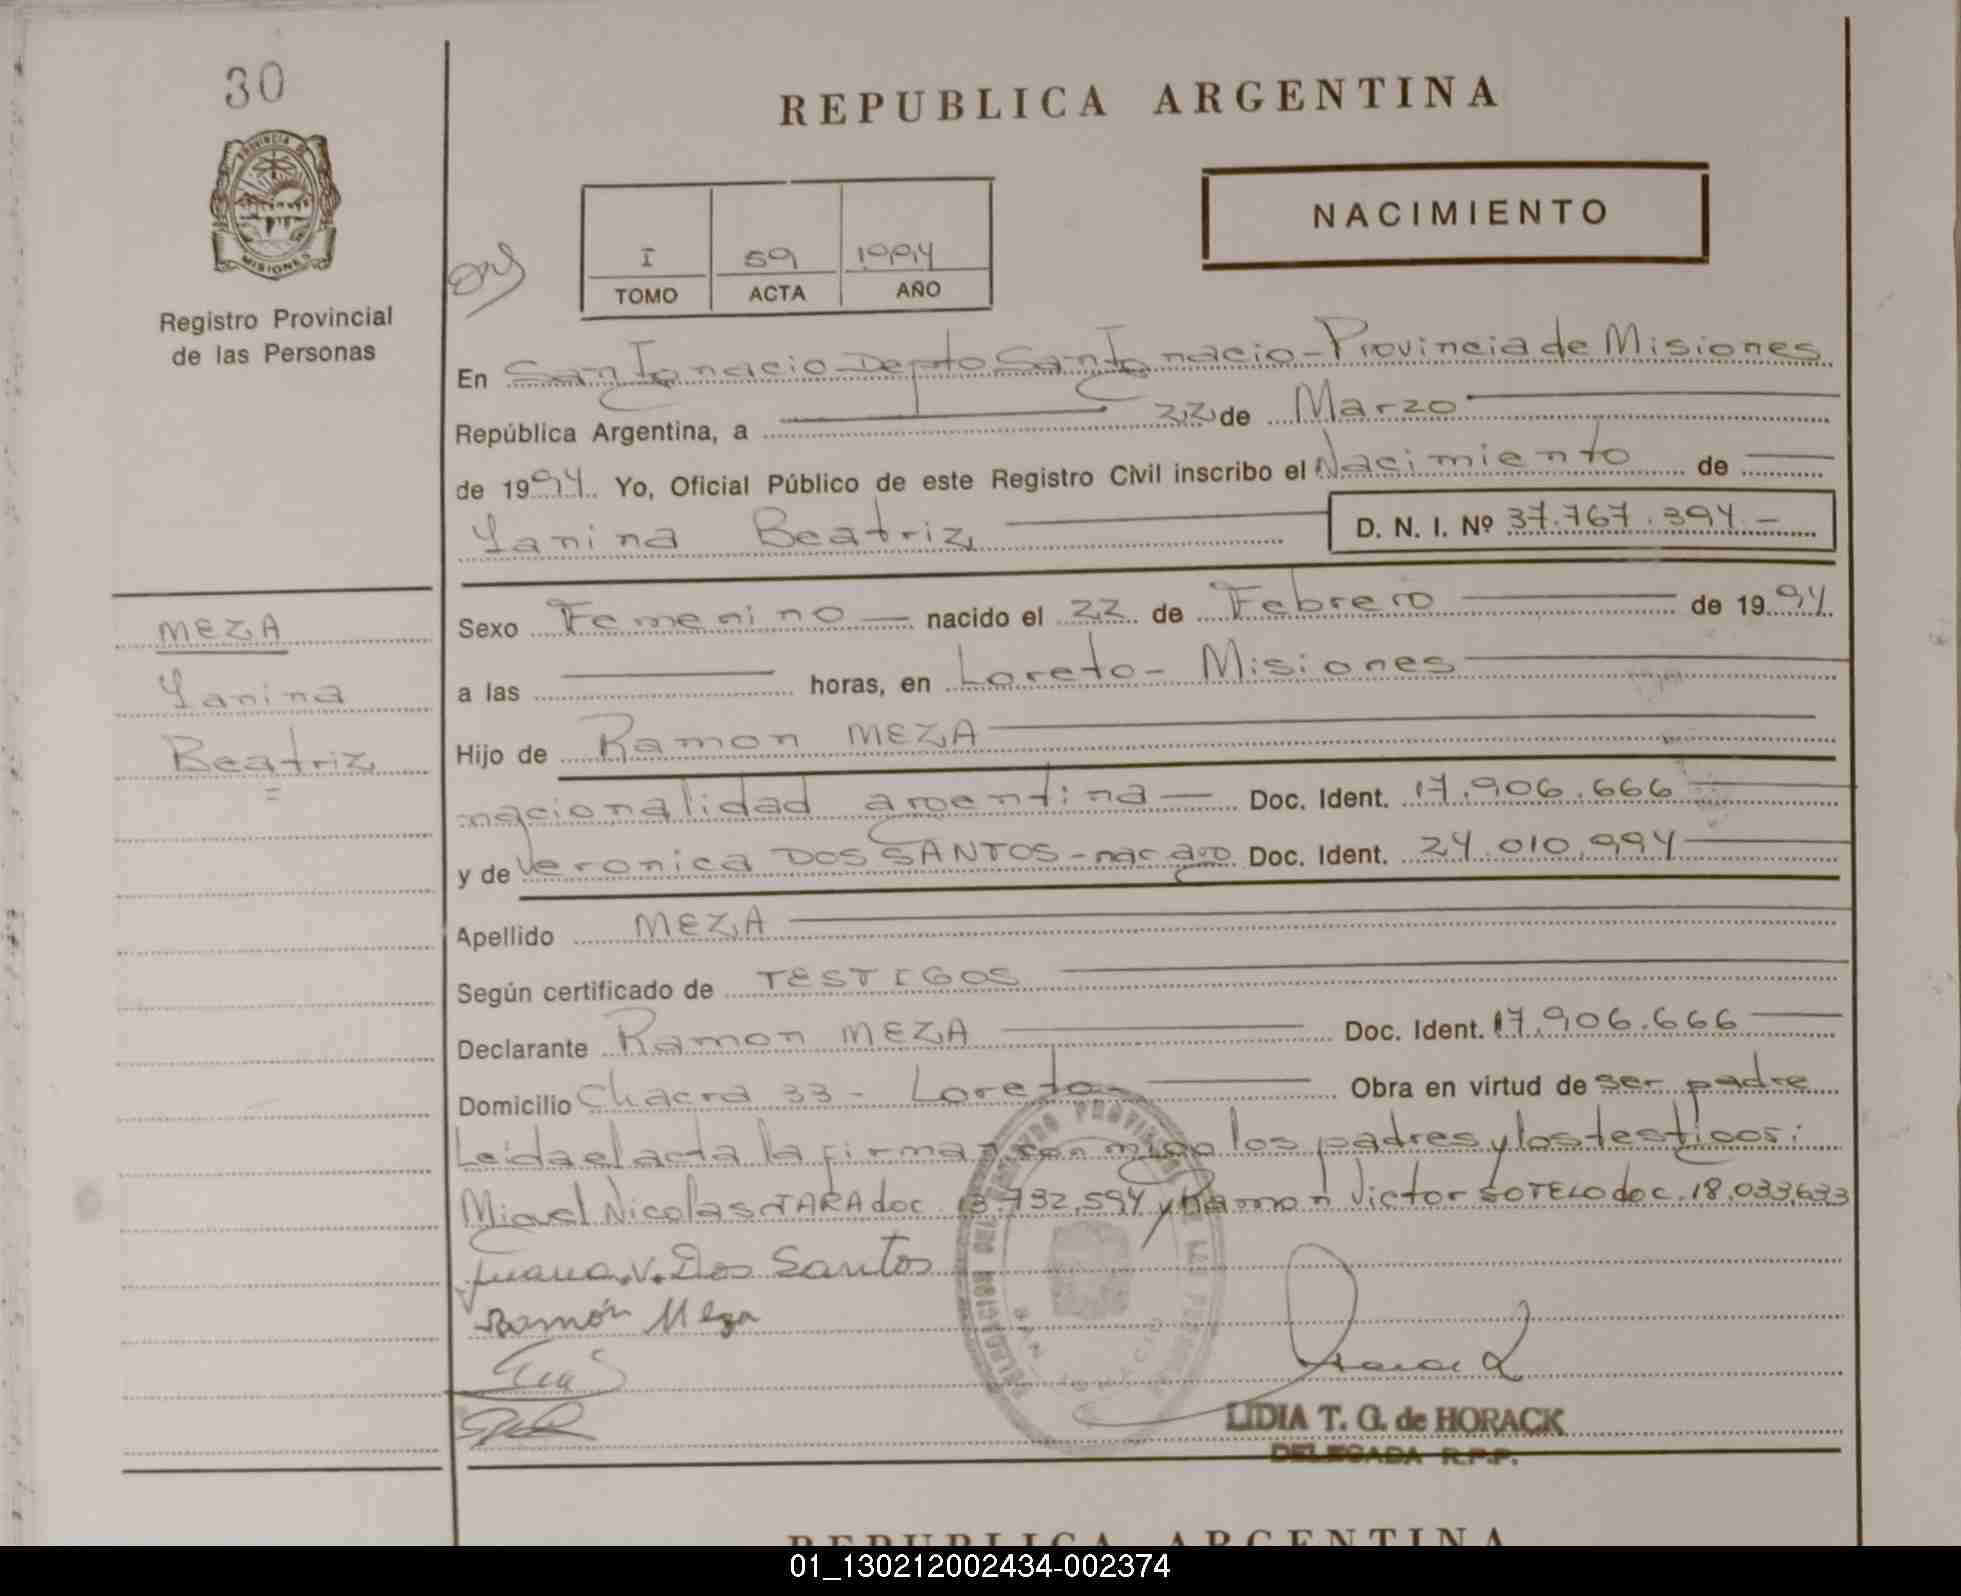 30
PROVINCIA DE
MISIONES
Registro Provincial
de las Personas
MEZA
Yanina
Beatriz
REPUBLICA ARGENTINA
NACIMIENTO
I 59 1994
TOMO ACTA AÑO
En San Ignacio Depto San Ignacio - Provincia de Misiones
República Argentina, a 22 de Marzo
de 1994. Yo, Oficial Público de este Registro Civil inscribo el Nacimiento de
Yanina Beatriz D. N. I. Nº 37.767.394.-
Sexo Femenino nacido el 22 de Febrero de 1994
a las horas, en Loreto - Misiones
Hijo de Ramon MEZA
nacionalidad argentina Doc. Ident. 17.906.666
y de Veronica DOS SANTOS - nac arg Doc. Ident. 24.010.994
Apellido MEZA
Según certificado de TESTIGOS
Declarante Ramon MEZA Doc. Ident. 17.906.666
Domicilio Chacra 33 - Loreto Obra en virtud de ser padre
Leida el acta la firman conmigo los padres y los testigos:
Miguel Nicolas JARA doc 13.732.594 y Ramon Victor SOTELO doc. 18.033.633
Juana.V. Dos Santos
Ramón Meza
LIDIA T. G. de HORACK
DELEGADA R.P.P.
REPUBLICA ARGENTINA
01_130212002434-002374